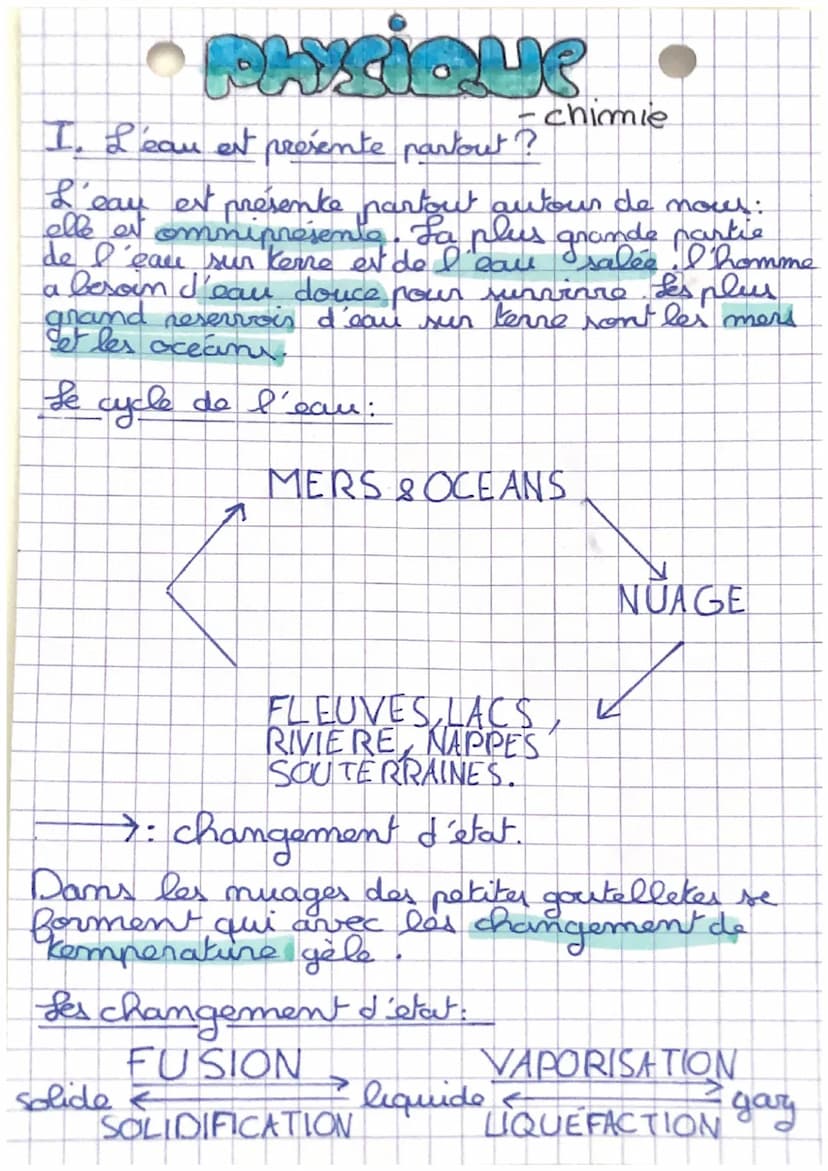 PHYSIQUE
- chimie
I. L'eau est présente partout ?
L'eau est présente partout autour de nous :
elle est omniprésente. La plus grande partie
de l'eau sur terre est de l'eau salée : l'homme
a besoin d'eau douce pour survivre. Les plus
grand reservoirs d'eau sur terre sont les mers
et les oceans.
Le cycle de l'eau :
MERS & OCEANS
NUAGE
FLEUVES, LACS,
RIVIERE, NAPPES
SOUTERRAINES.
→ : changement d'état.
Dans les nuages des petites goutelletes se
forment qui avec les changement de
temperature gèle.
Les changement d'etat :
FUSION VAPORISATION
solide liquide gaz
SOLIDIFICATION LIQUÉFACTION